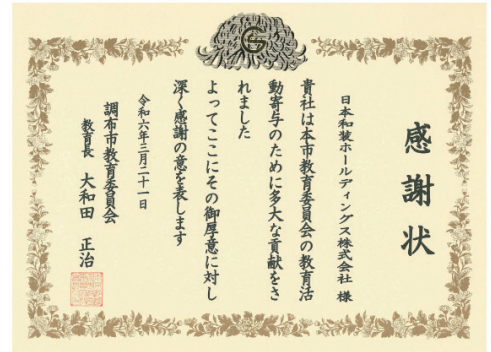 感謝状
日本和装ホールディングス株式会社 様
貴社は本市教育委員会の教育活
動寄与のために多大な貢献をさ
れました
よってここにその御厚意に対し
深く感謝の意を表します
令和六年三月二十一日
調布市教育委員会
教育長 大和田 正治